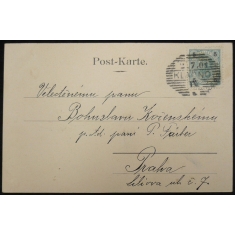 Post-Karte.
Velectěnému panu
Bohuslavu Kojenskému
p.td paní P. Sailer
Praha
ul. č. 7.